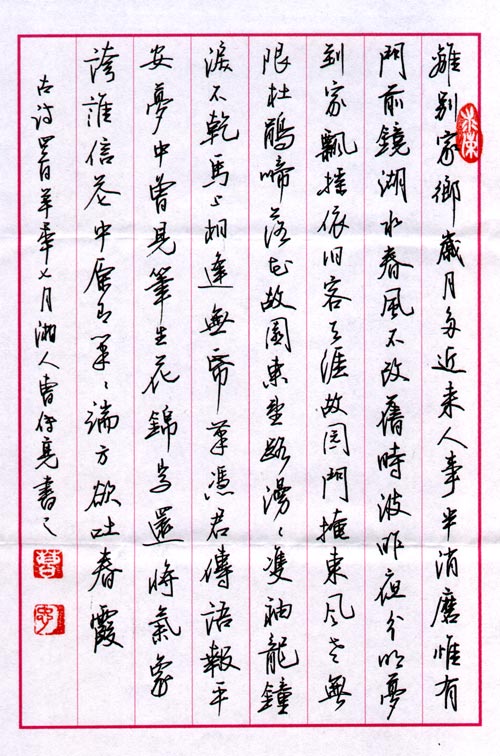 離别家鄉歲月多近来人事半消磨惟有
门前鏡湖水春風不改舊時波昨夜分明夢
到家飄摇依旧客天涯故园门掩東风老無
限杜鵑啼落花故園東望路漫〻雙袖龍鐘
淚不乾馬上相逢無帋筆憑君傳語報平
安夢中曾見筆生花錦字還將氣象
誇誰信花中原有筆〻端方欲吐春霞
古诗四首羊年七月湘人曹傳亮書之